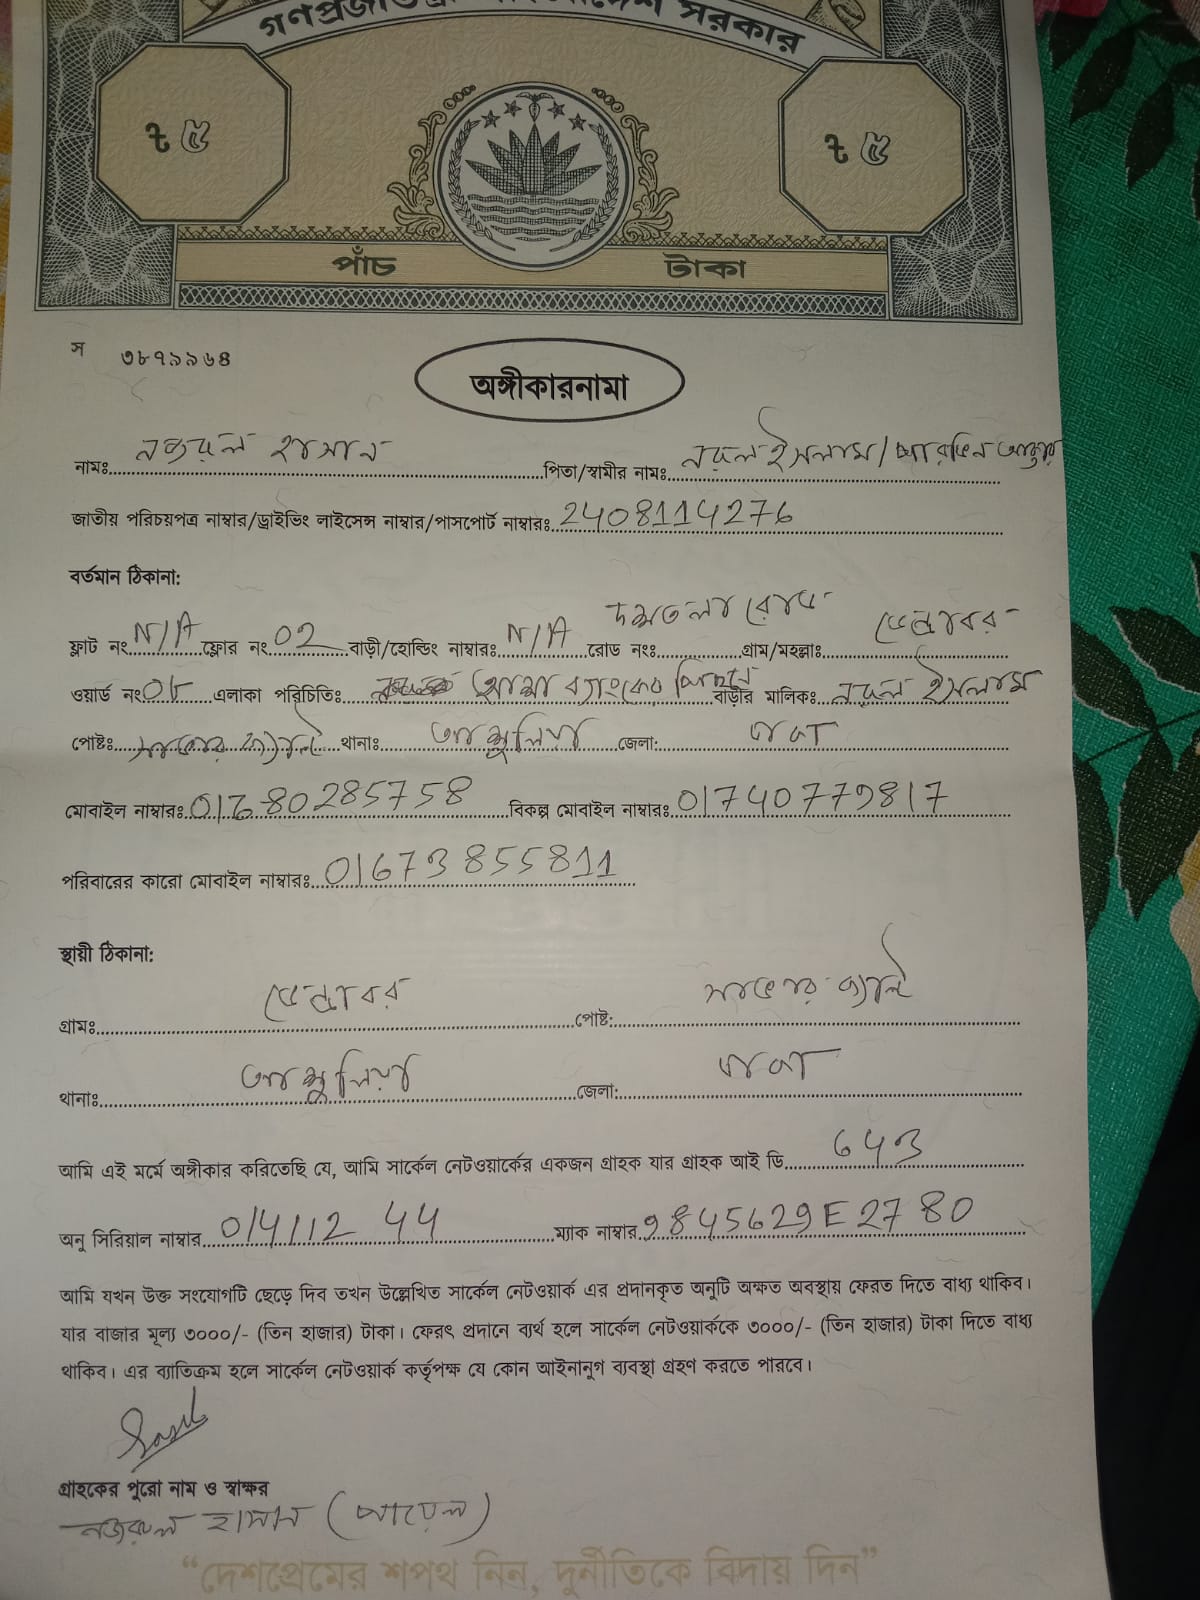 গণপ্রজাতন্ত্রী বাংলাদেশ সরকার
৳ ৫ ৳ ৫
পাঁচ টাকা
স ৩৮৭৯৯৬৪
অঙ্গীকারনামা
নামঃ নজরুল হাসান পিতা/স্বামীর নামঃ নুরুল ইসলাম/
জাতীয় পরিচয়পত্র নাম্বার/ড্রাইভিং লাইসেন্স নাম্বার/পাসপোর্ট নাম্বারঃ 2408114276
বর্তমান ঠিকানা:
ফ্লাট নং N/A ফ্লোর নং 02 বাড়ী/হোল্ডিং নাম্বারঃ N/A রোড নং কদমতলা রোড গ্রাম/মহল্লাঃ ডেন্ডাবর
ওয়ার্ড নং 08 এলাকা পরিচিতিঃ ব্যাংকের পিছনে বাড়ীর মালিকঃ নুরুল ইসলাম
পোষ্টঃ থানাঃ আশুলিয়া জেলা: ঢাকা
মোবাইল নাম্বারঃ বিকল্প মোবাইল নাম্বারঃ 01740779817
পরিবারের কারো মোবাইল নাম্বারঃ 01673855811
স্থায়ী ঠিকানা:
গ্রামঃ ডেন্ডাবর পোষ্ট: সাভার ক্যান্ট
থানাঃ আশুলিয়া জেলা: ঢাকা
আমি এই মর্মে অঙ্গীকার করিতেছি যে, আমি সার্কেল নেটওয়ার্কের একজন গ্রাহক যার গ্রাহক আই ডি 643
অনু সিরিয়াল নাম্বার 014112 44 ম্যাক নাম্বার 9845629E2780
আমি যখন উক্ত সংযোগটি ছেড়ে দিব তখন উল্লেখিত সার্কেল নেটওয়ার্ক এর প্রদানকৃত অনুটি অক্ষত অবস্থায় ফেরত দিতে বাধ্য থাকিব।
যার বাজার মূল্য ৩০০০/- (তিন হাজার) টাকা। ফেরৎ প্রদানে ব্যর্থ হলে সার্কেল নেটওয়ার্ককে ৩০০০/- (তিন হাজার) টাকা দিতে বাধ্য
থাকিব। এর ব্যাতিক্রম হলে সার্কেল নেটওয়ার্ক কর্তৃপক্ষ যে কোন আইনানুগ ব্যবস্থা গ্রহণ করতে পারবে।
গ্রাহকের পুরো নাম ও স্বাক্ষর
নজরুল হাসান (পায়েল)
“দেশপ্রেমের শপথ নিন, দুর্নীতিকে বিদায় দিন”